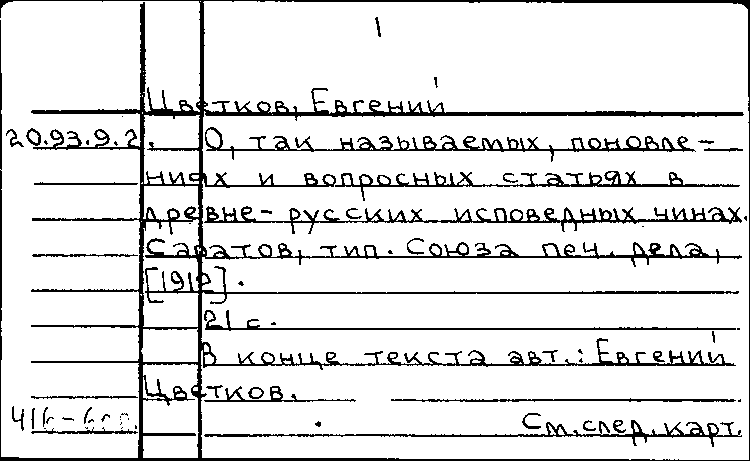 1
Цветков, Евгений
20.93.9.2. О, так называемых, поновле-
ниях и вопросных статьях в
древне-русских исповедных чинах.
Саратов, тип. Союза печ. дела,
[1912].
21 с.
В конце текста авт.: Евгений
Цветков.
См. след. карт.